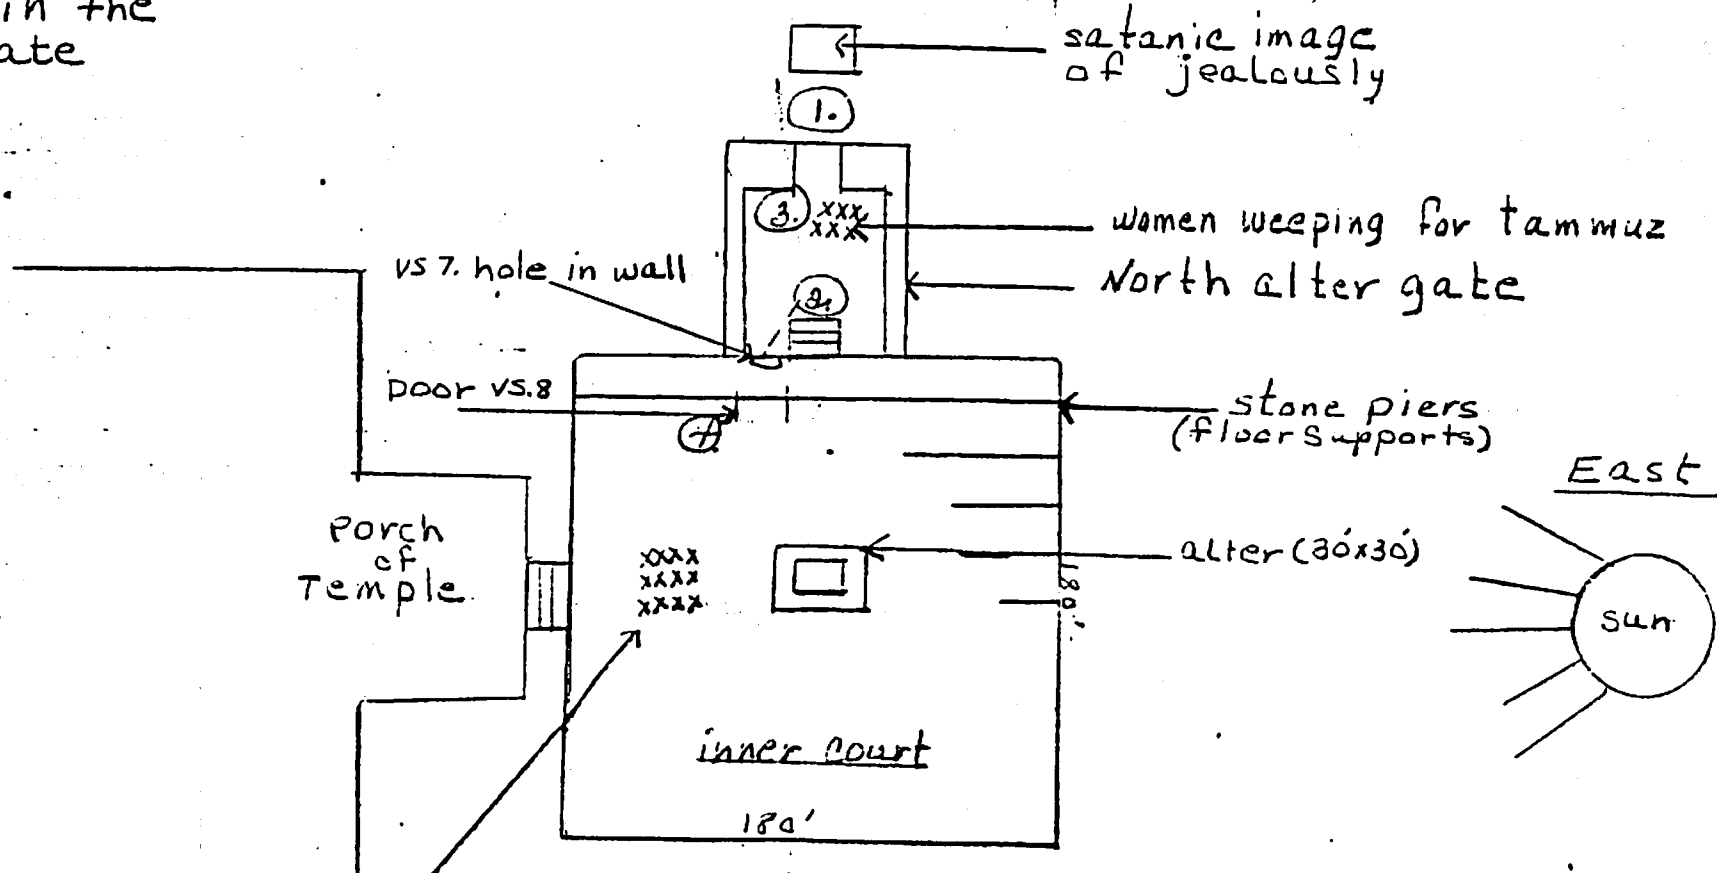 in the
ate
satanic image
of jealously
1.
3.
xxx
xxx
women weeping for tammuz
vs 7. hole in wall
2.
North alter gate
Door vs.8
stone piers
(floor supports)
East
Porch
of
Temple
xxxx
xxxx
xxxx
alter (30'x30')
180'
sun
inner court
180'